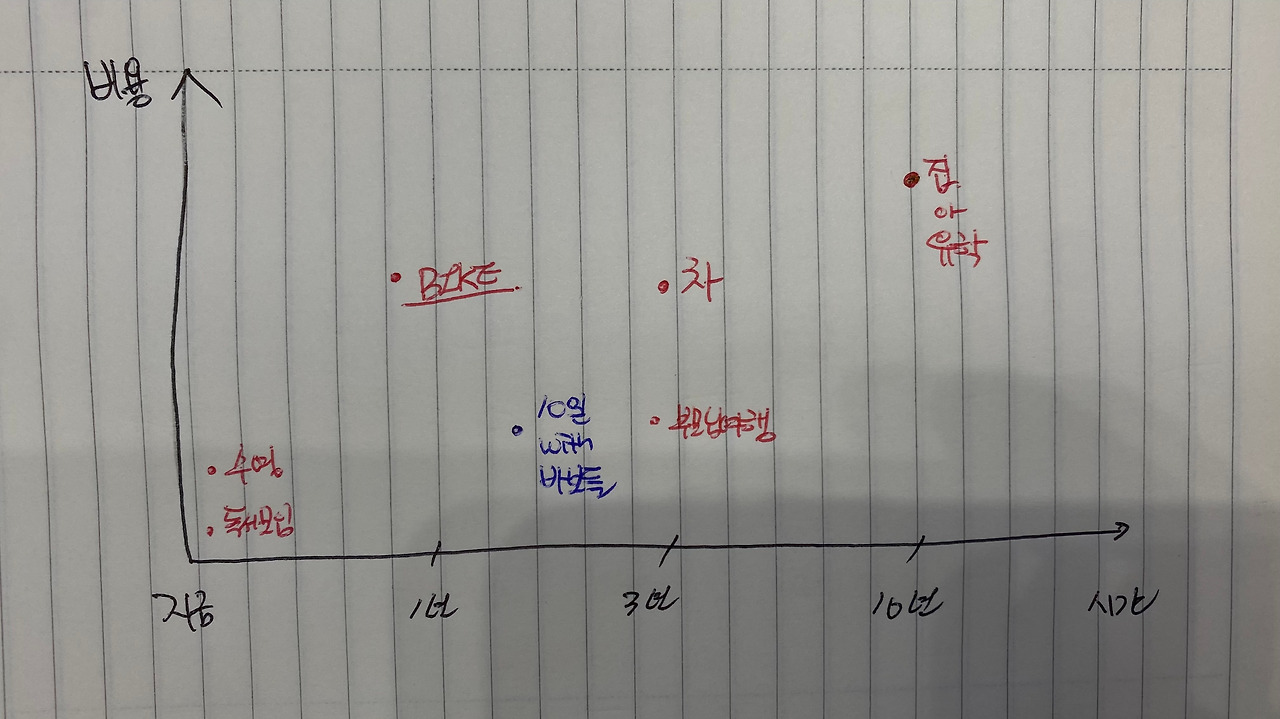 비용
집
아
유학
BIKE
차
10일
with
바보들
부모님여행
수영
독서모임
지금
1년
3년
10년
시간